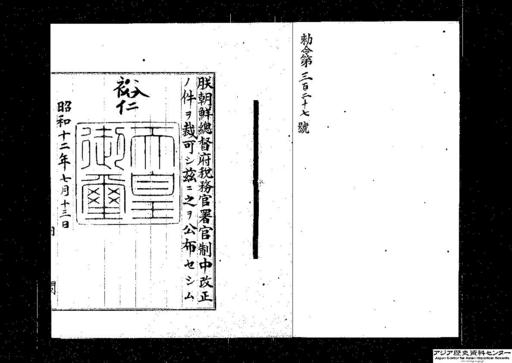 勅令第三百二十七號
朕朝鮮總督府税務官署官制中改正
ノ件ヲ裁可シ茲ニ之ヲ公布セシム
裕仁
天皇
御璽
昭和十二年七月十三日
アジア歴史資料センター
Japan Center for Asian Historical Records